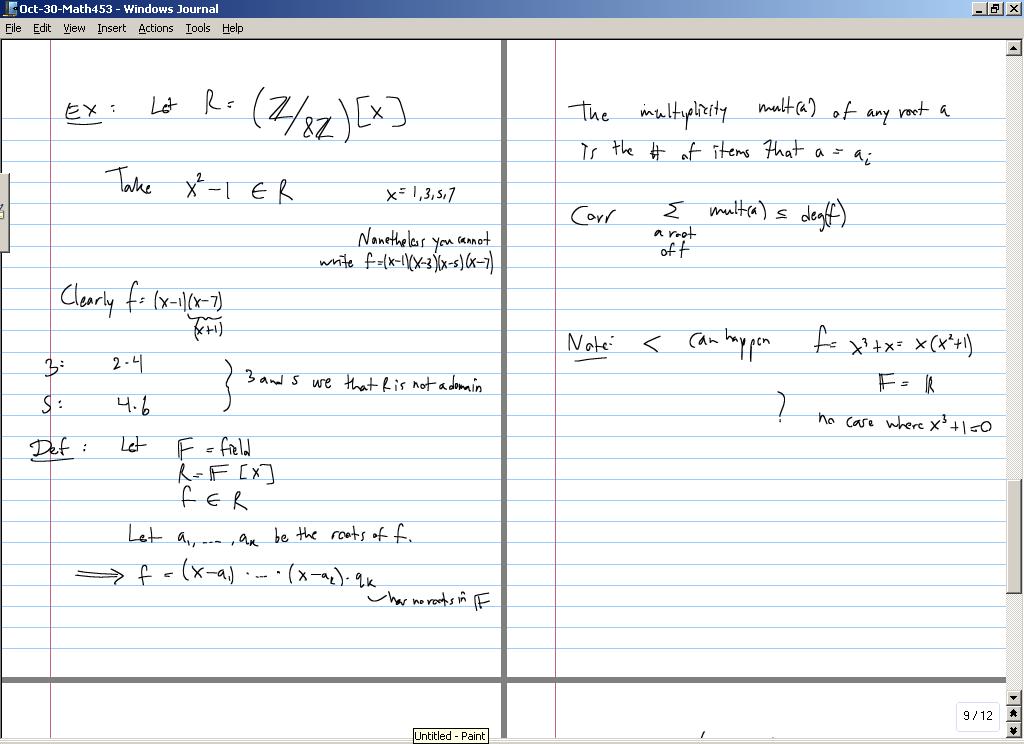 Oct-30-Math453 - Windows Journal
File Edit View Insert Actions Tools Help
EX: Let R = (ℤ/8ℤ)[x]
Take x² - 1 ∈ R x = 1,3,5,7
Nonetheless you cannot
write f = (x-1)(x-3)(x-5)(x-7)
Clearly f = (x-1)(x-7)
(x+1)
3: 2·4
5: 4·6
} 3 and 5 we that R is not a domain
Def: Let 𝔽 = field
R = 𝔽[x]
f ∈ R
Let a₁, ..., aₖ be the roots of f.
⟹ f = (x-a₁) · ... · (x-aₖ) · qₖ
has no roots in 𝔽
The multiplicity mult(a) of any root a
is the # of items that a = aᵢ
Corr Σ mult(a) ≤ deg(f)
a root
of f
Note: < can happen f = x³ + x = x(x²+1)
𝔽 = ℝ
? no case where x³ + 1 = 0
9 / 12
Untitled - Paint